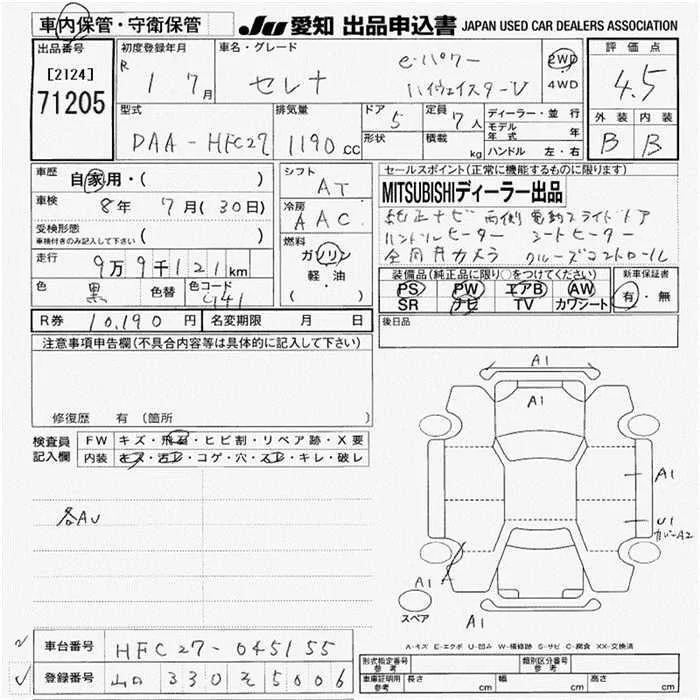 車内保管・守衛保管
JU 愛知 出品申込書 JAPAN USED CAR DEALERS ASSOCIATION
出品番号
[2124]
71205
初度登録年月
R 1 7月
車名・グレード
セレナ
e-パワー
ハイウェイスターV
2WD
4WD
評価点
4.5
外装 内装
B B
型式
DAA-HFC27
排気量
1190 cc
ドア 5
形状
定員 7人
積載 kg
ディーラー・並行
モデル年式 年
ハンドル 左・右
車歴 自家用・( )
車検 8年 7月(30日)
受検形態
車検付きのみ記入して下さい ( )
走行 9万9千121km
色 黒 色替 色コード G41
シフト
AT
冷房
AAC
燃料
ガソリン
軽・油
( )
セールスポイント(正常に機能するものに限ります)
MITSUBISHIディーラー出品
純正ナビ 両側電動スライドドア
ハンドルヒーター シートヒーター
全周囲カメラ クルーズコントロール
装備品(純正品に限り○をつけてください)
PS PW エアB AW
SR ナビ TV カワシート
新車保証書
有・無
R券 10,190円 名変期限 月 日
後日品
注意事項申告欄(不具合内容等は具体的に記入して下さい)
修復歴 有 (箇所
検査員記入欄
FW キズ・飛石・ヒビ割・リペア跡・X要
内装 キズ・汚レ・コゲ・穴・スレ・キレ・破レ
各AU
A1
A1
A1
U1
カバーA2
A1
A1
スペア
A-キズ E-エクボ U-凹み W-補修跡 S-サビ C-腐食 XX-交換済
車台番号 HFC27-045155
登録番号 330 そ 5006
形式指定番号 参考
類別区分番号 参考
車庫証明用 参考
長さ cm 幅 cm 高さ cm